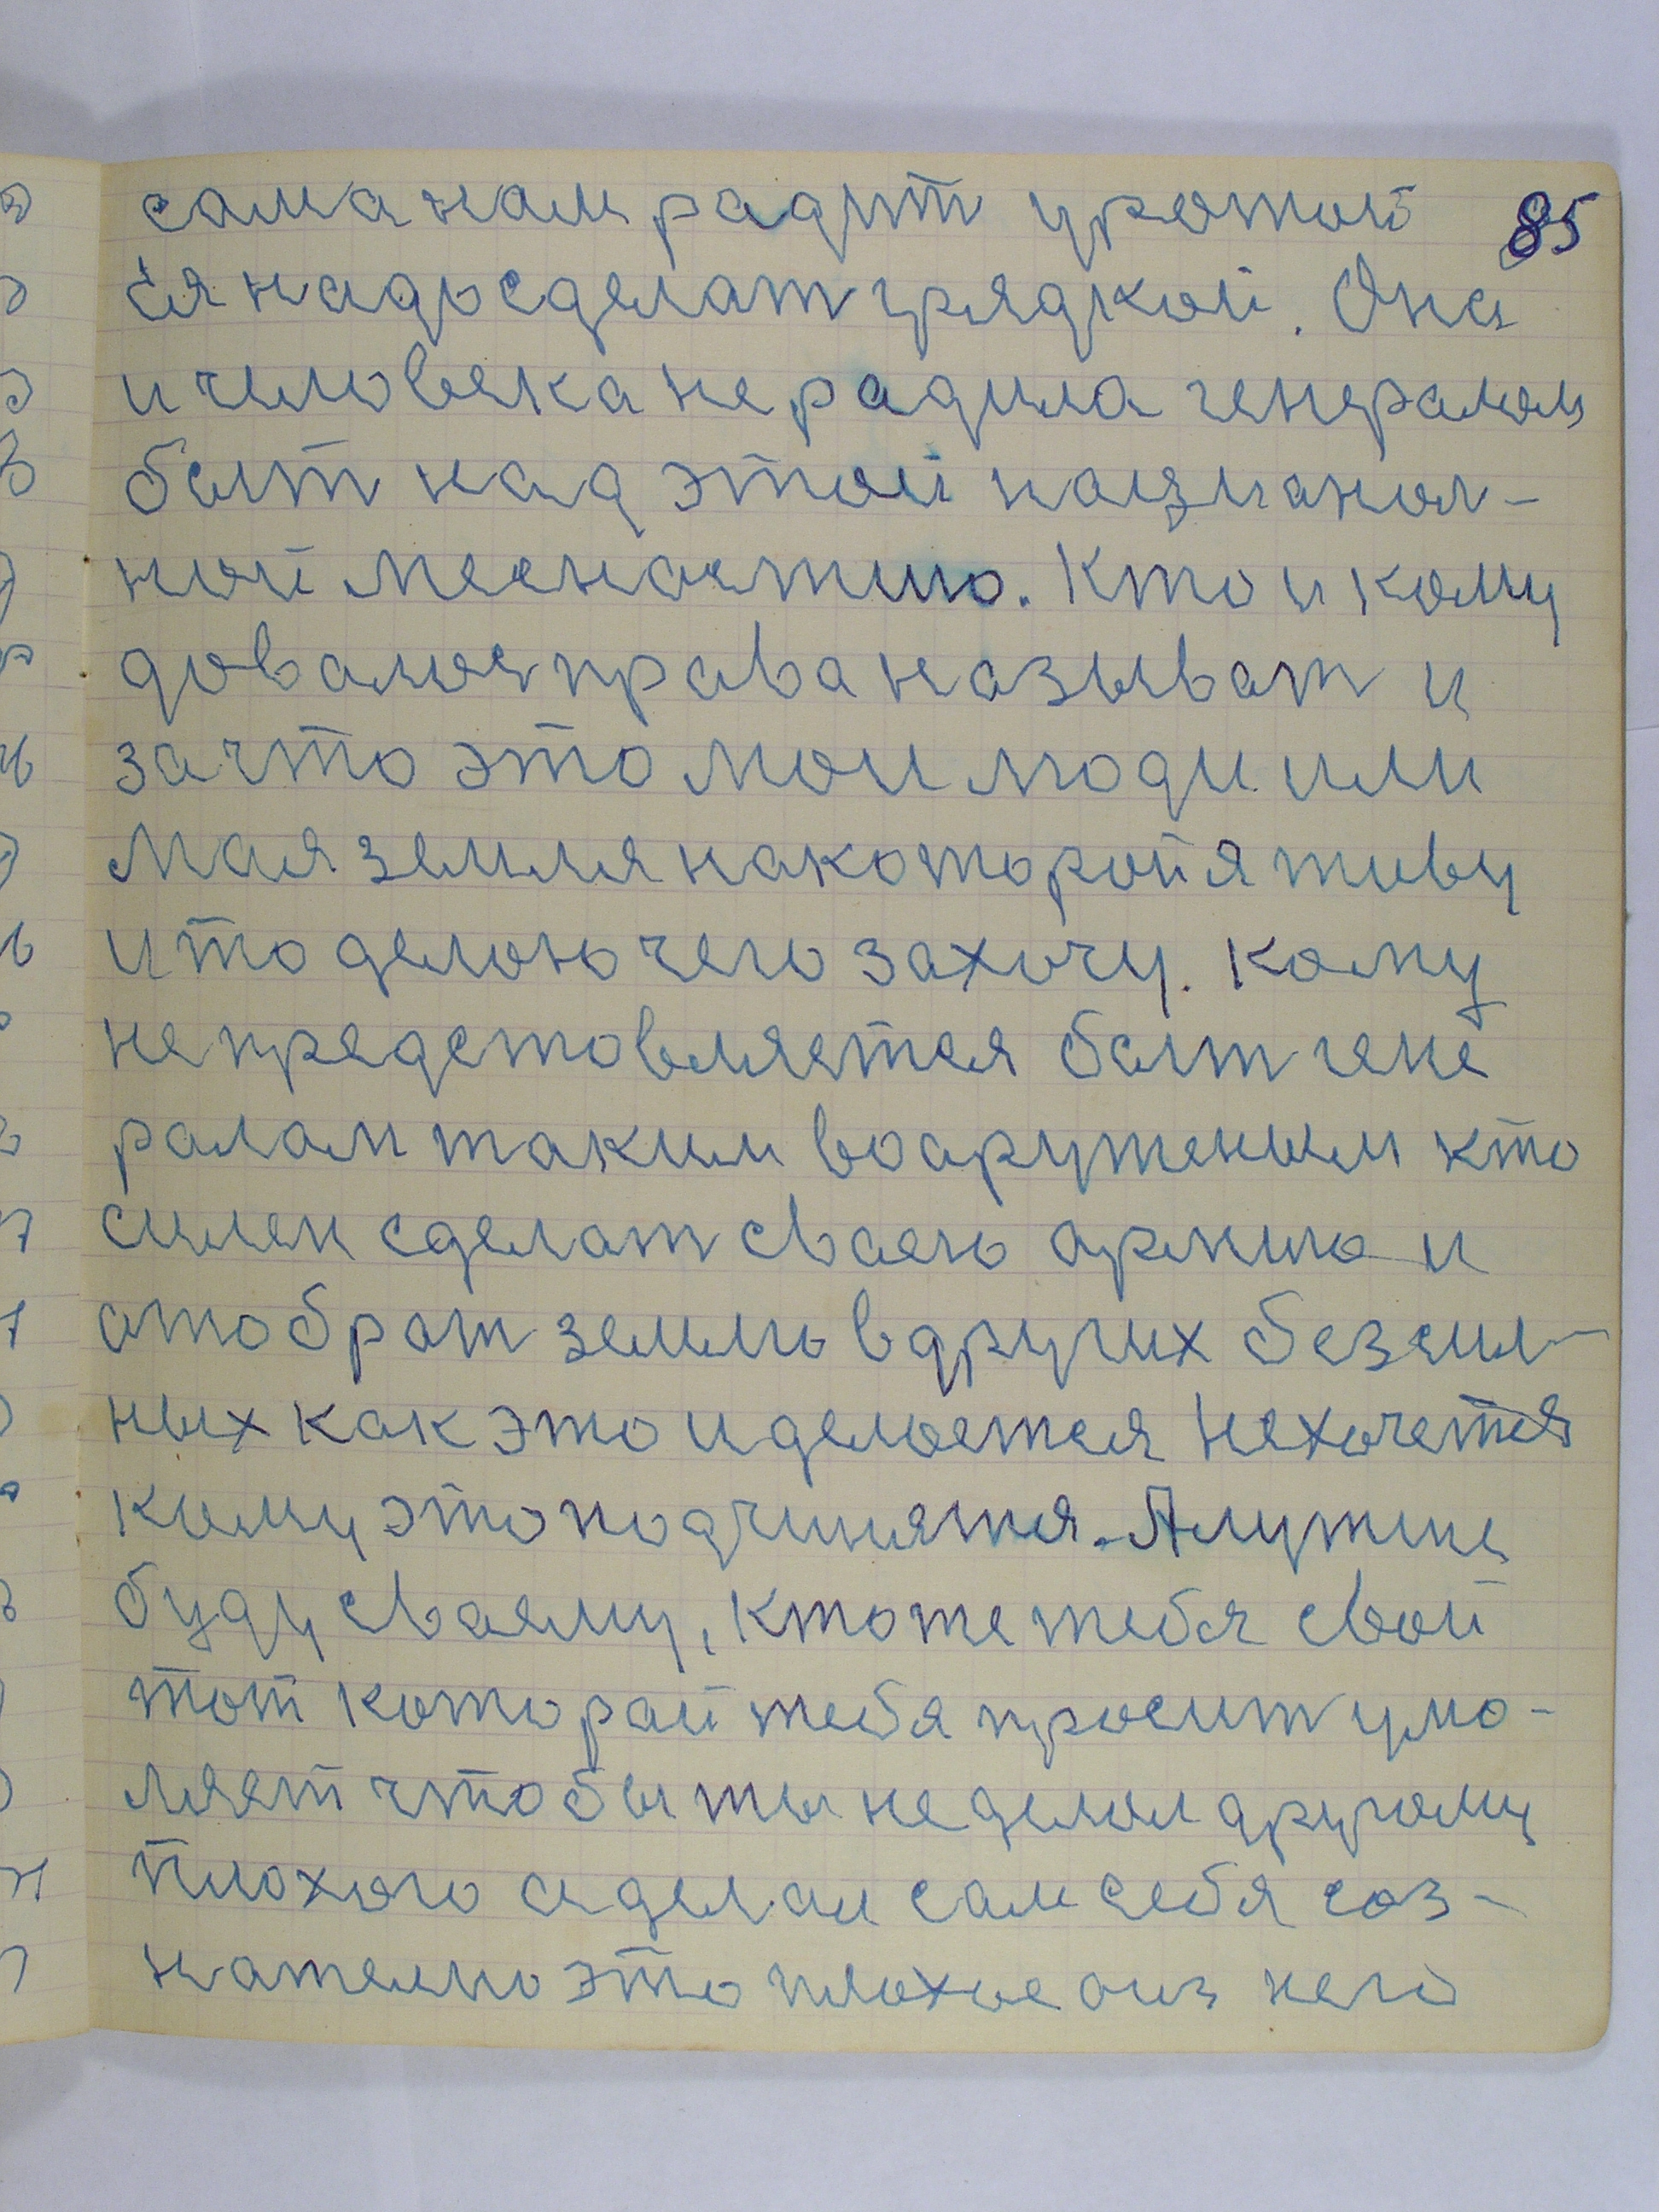 сама нам радит урожай 85
ея надо сделат грядкой. Она
и человека не радила генералом
быт над этой нацыанал-
ной месностию. Кто и кому
довалос права называт и
за что это мои люди или
мая земля на которой я живу
и то делаю чего захочу. Кому
не представляется быт гене
ралам таким вооруженым кто
силен сделат сваею армию и
отобрат землю в других безсил-
ных как это и делается Не хочется
кому это подчинятся. А служит
буду сваему, кто же тебя свой
тот которай тебя просит умо-
ляет чтобы ты не делал другому
плохого а делал сам себя соз-
нателно это плохое а из него